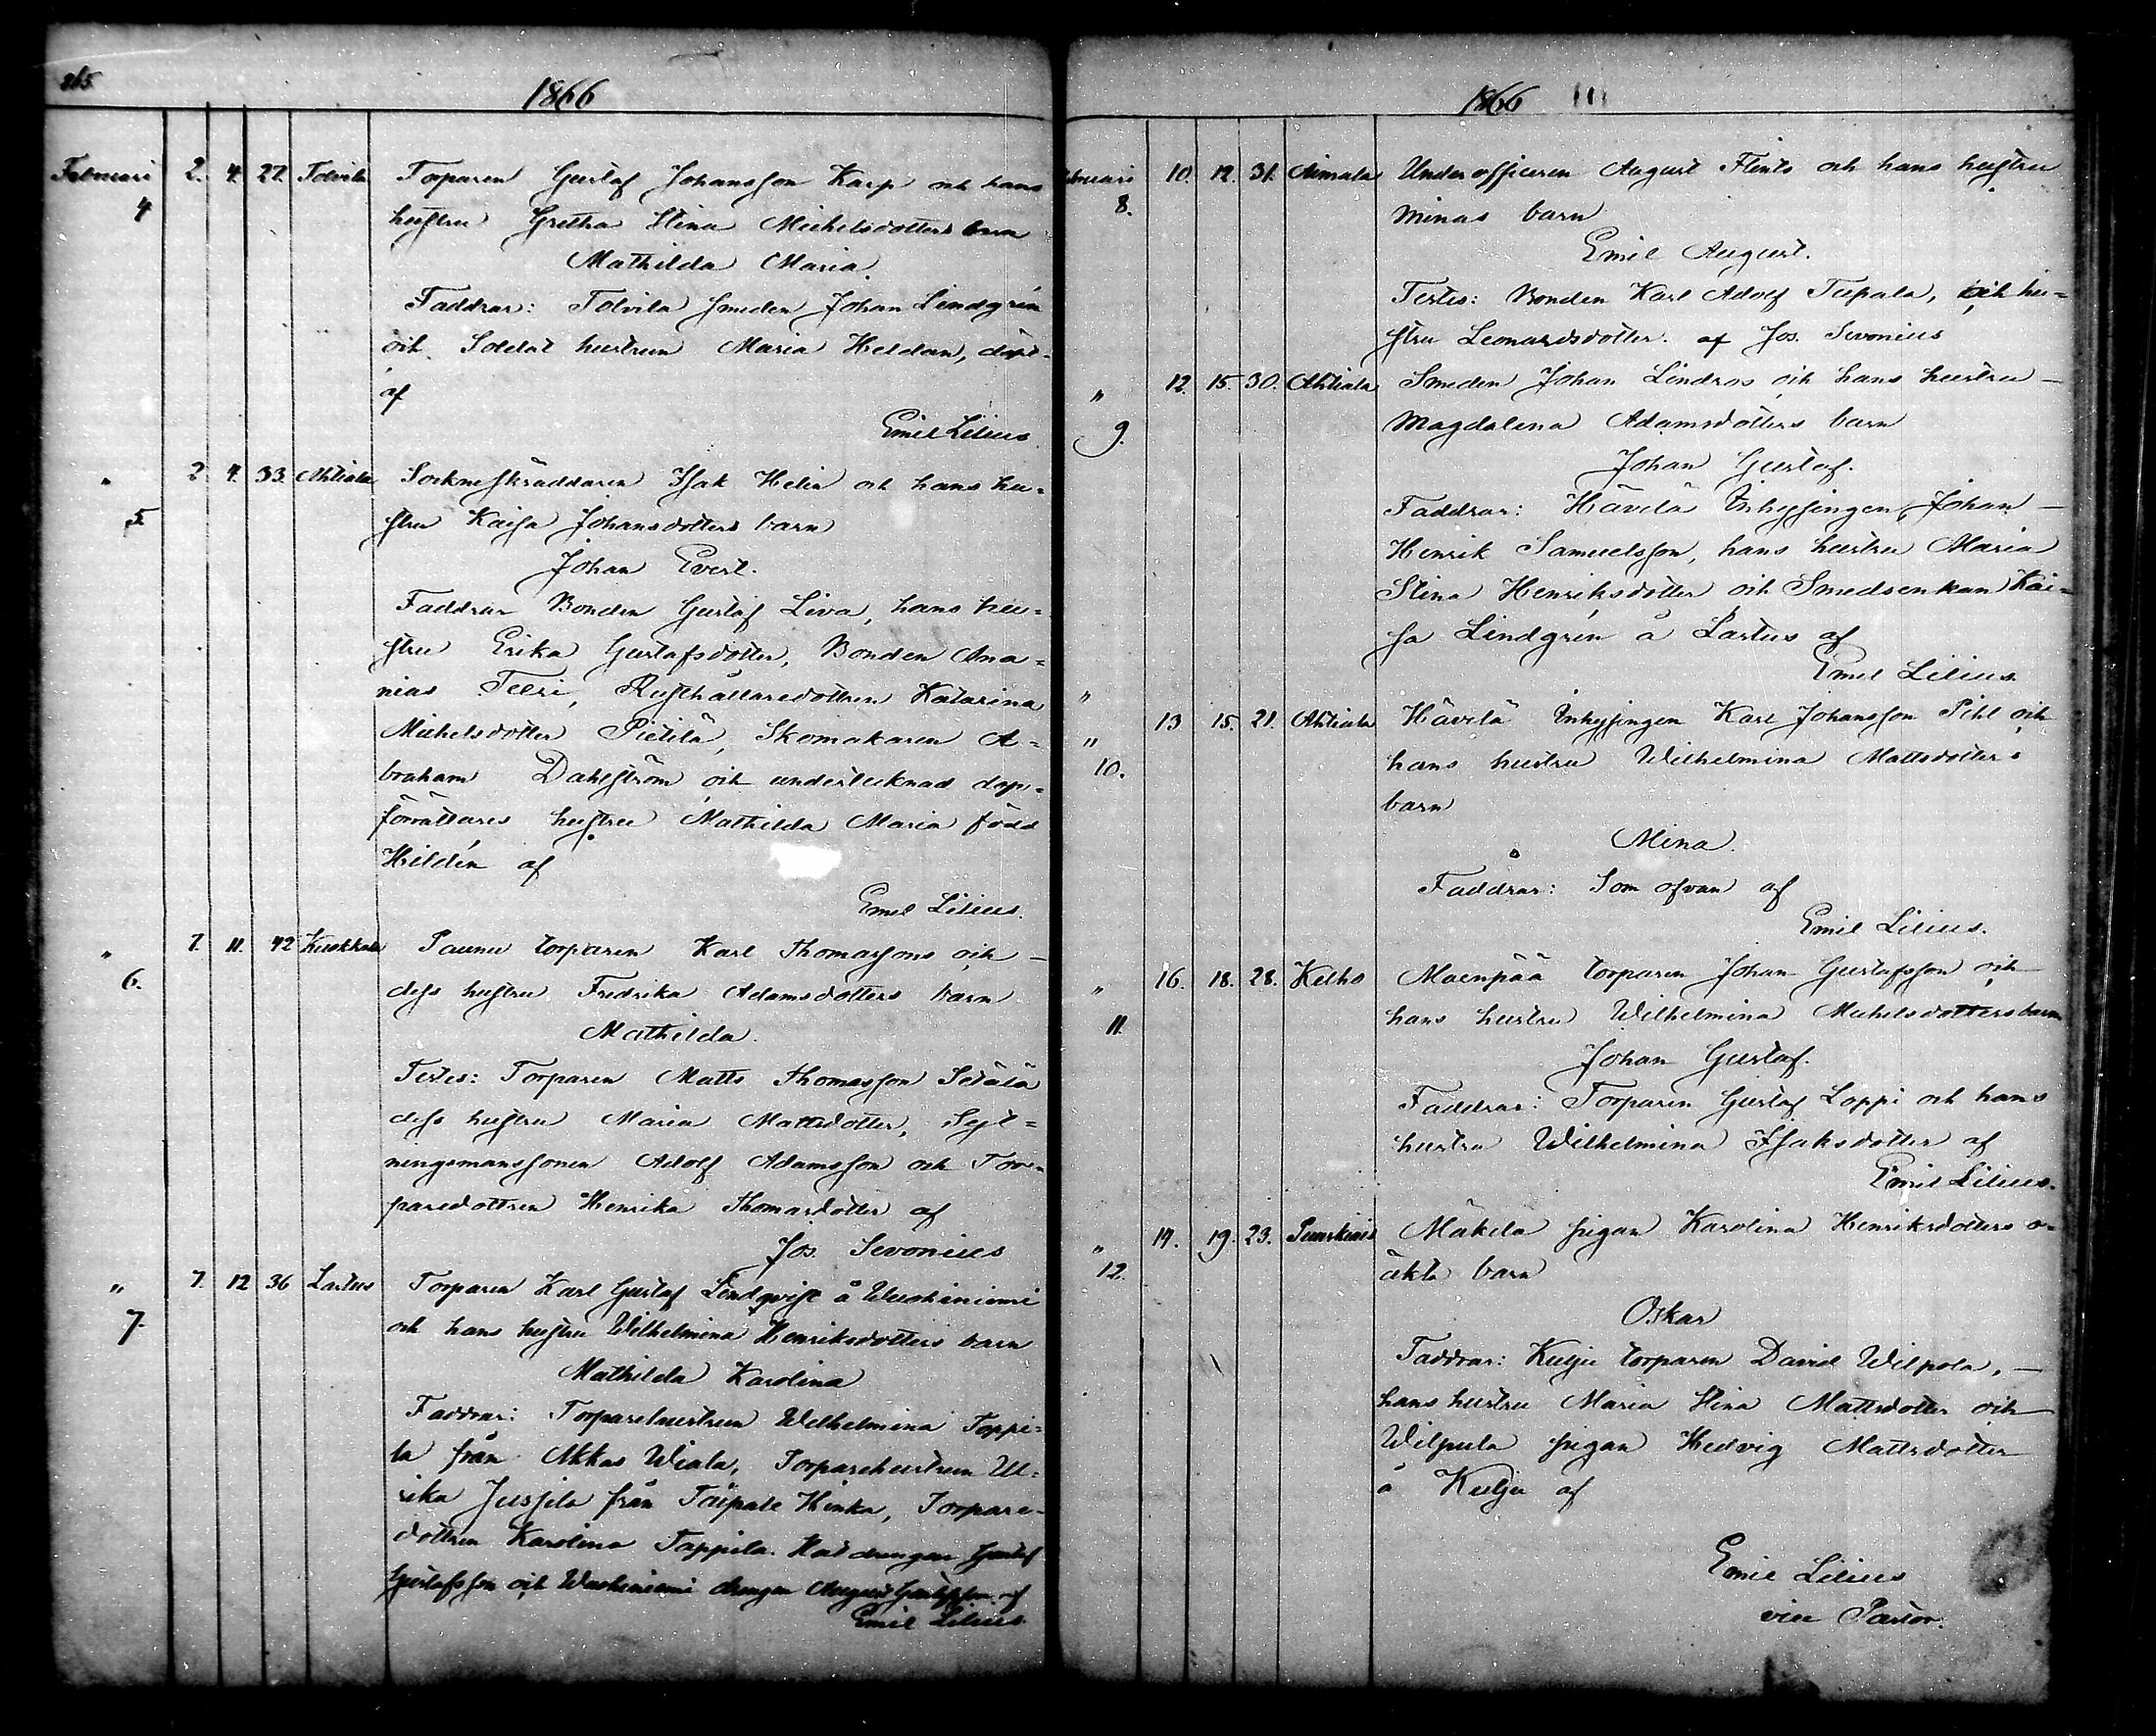 265.
1866
Februari 2. 4. 27. Tolvila Torparen Gustaf Johansson Karp och hans
4 hustru Gretha Stina Michelsdotters barn
Mathilda Maria.
Faddrar: Tolvila smeden Johan Lindgrén
och Soldat hustrun Maria Heldan, döpt
af
Emil Lilius.
" 2. 4. 33. Ahtiala Sockneskräddaren Isak Helin och hans hu-
5 stru Kaisa Johansdotters barn
Johan Evert.
Faddrar Bonden Gustaf Liva, hans hu-
stru Erika Gustafsdotter, Bonden Ana-
nias Teeri, Rusthållaredottren Katarina
Michelsdotter Pietilä, Skomakaren A-
braham Dahlström och undertecknad dop-
förrättares hustru Mathilda Maria född
Hildén af
Emil Lilius.
" 7. 11. 42 Kuokkala Paunu torparen Karl Thomassons och
6. dess hustru Fredrika Adamsdotters barn
Mathilda.
Testes: Torparen Matts Thomasson Setälä
dess hustru Maria Mattsdotter, Sext-
ningsmanssonen Adolf Adamsson och Tor-
paredottren Henrika Thomasdotter af
Jos. Sevonius
" 7. 12 36 Lastus Torparen Karl Gustaf Lindqvist å Wuohiniemi
7. och hans hustru Wilhelmina Henriksdotters barn
Mathilda Karolina
Faddrar: Torparehustrun Wilhelmina Toppi-
la från Akkas Wiala, Torparehustrun Ul-
rika Jussila från Taipale Hinka, Torpare-
dottren Karolina Tappila. drengen Gustaf
Gustafsson och Wuohiniemi drengen August Gustafsson af
Emil Lilius
1866
Februari 10. 12. 31. Aimala Underofficeren August Flints och hans hustru
8. Minas barn
Emil August.
Testes: Bonden Karl Adolf Tupala, och hu-
stru Leonardsdotter. af Jos. Sevonius
" 12. 15. 30. Ahtiala Smeden Johan Lindros och hans hustru
9. Magdalena Adamsdotters barn
Johan Gustaf.
Faddrar: Hävilä Inhysingen Johan
Henrik Samuelsson, hans hustru Maria
Stina Henriksdotter och Smedsenkan Kai-
sa Lindgrén å Lastus af
Emil Lilius.
"
" 13 15. 21. Ahtiala Hävilä Inhysingen Karl Johansson Pihl och
10. hans hustru Wilhelmina Mattsdotters
barn
Mina.
Faddrar: Som ofvan af
Emil Lilius.
" 16. 18. 28. Kelho Maenpää torparen Johan Gustafsson och
11. hans hustru Wilhelmina Michelsdotters barn
Johan Gustaf.
Faddrar: Torparen Gustaf Loppi och hans
hustru Wilhelmina Isaksdotter af
Emil Lilius.
" 14. 19. 23. Mäkela pigan Karolina Henriksdotters o-
12. äkta barn
Oskar
Faddrar: Kulju torparen David Wilpola,
hans hustru Maria Stina Mattsdotter och
Wilpula pigan Hedvig Mattsdotter
å Kulju af
Emil Lilius
vice Pastor.